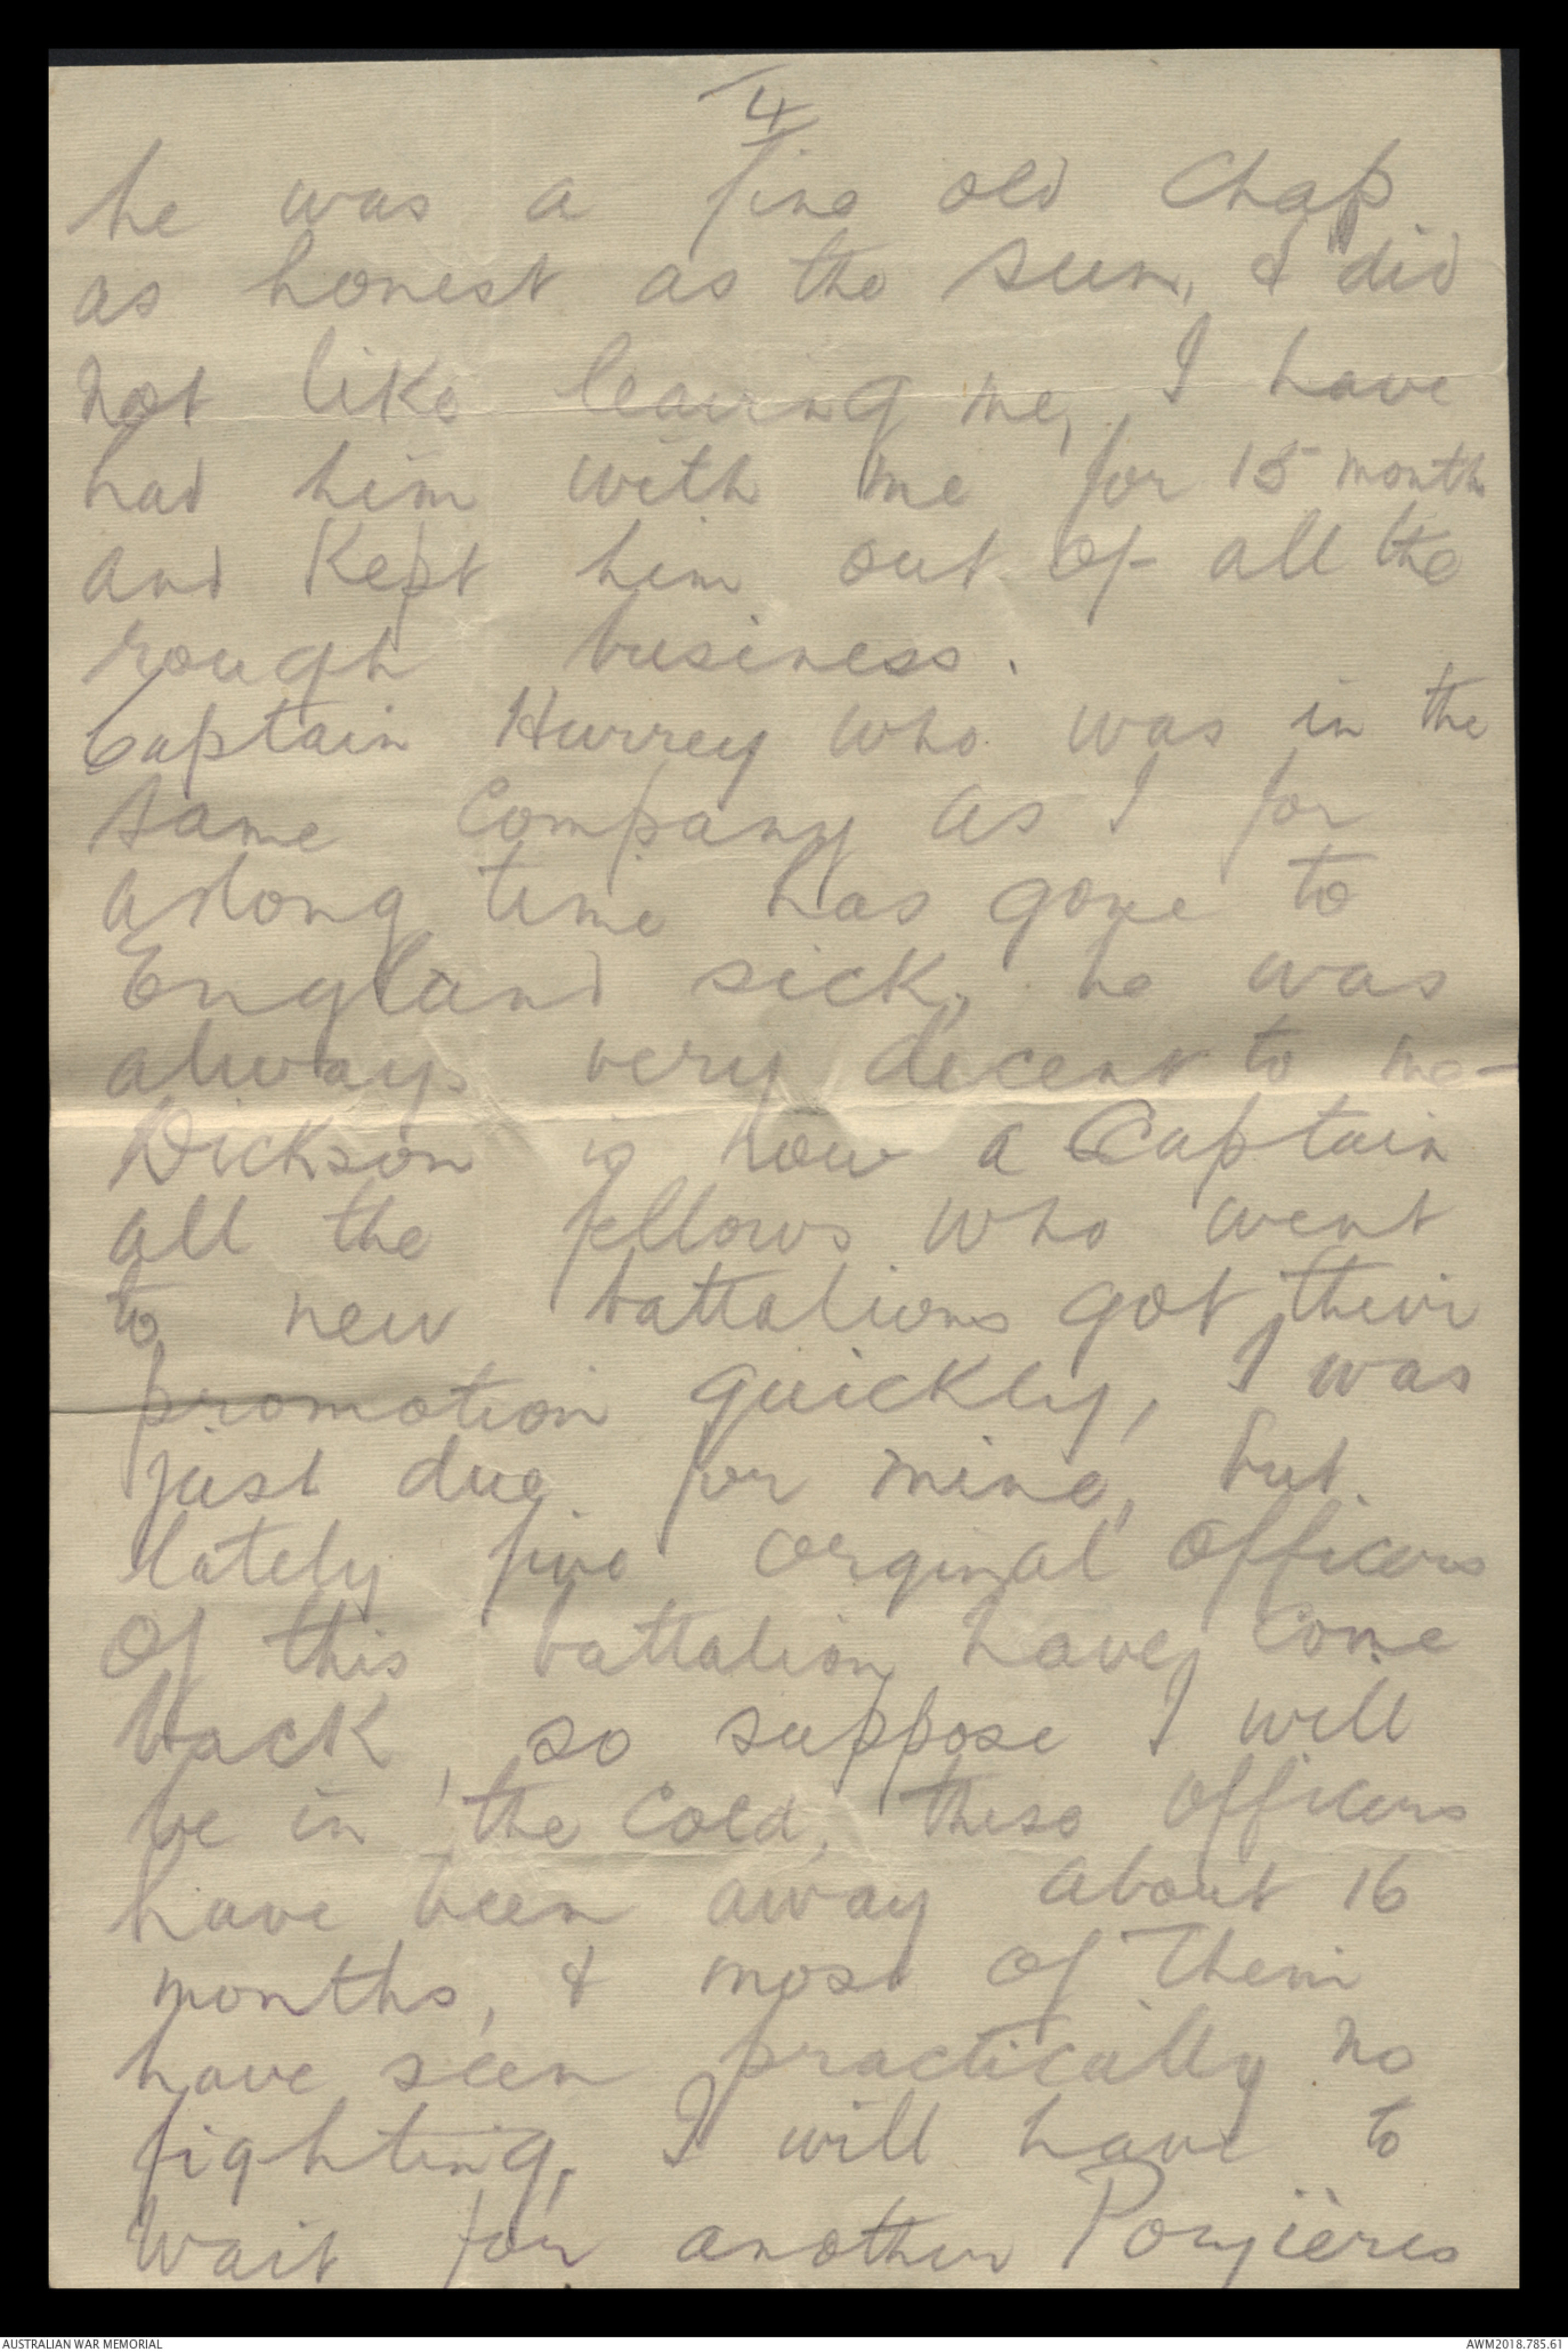 4
he was a fine old Chap
as honest as the sun, & did
not like leaving me, I have
had him with me for 15 months
and Kept him out of all the
rough business.
Captain Hurrey who was in the
same Company as I for
a long time has gone to
England sick, he was
always very decent to me -
Dickson is now a Captain
all the fellows who went
to new battalions got their
promotion quickly, I was
just due for mine, but
lately five orginal Officers
of this battalion have come
back, so suppose I will
be in the cold, these officers
have been away about 16
months, & most of them
have seen practically no
fighting, I will have to
wait for another Pozières
AUSTRALIAN WAR MEMORIAL
AWM2018.785.61